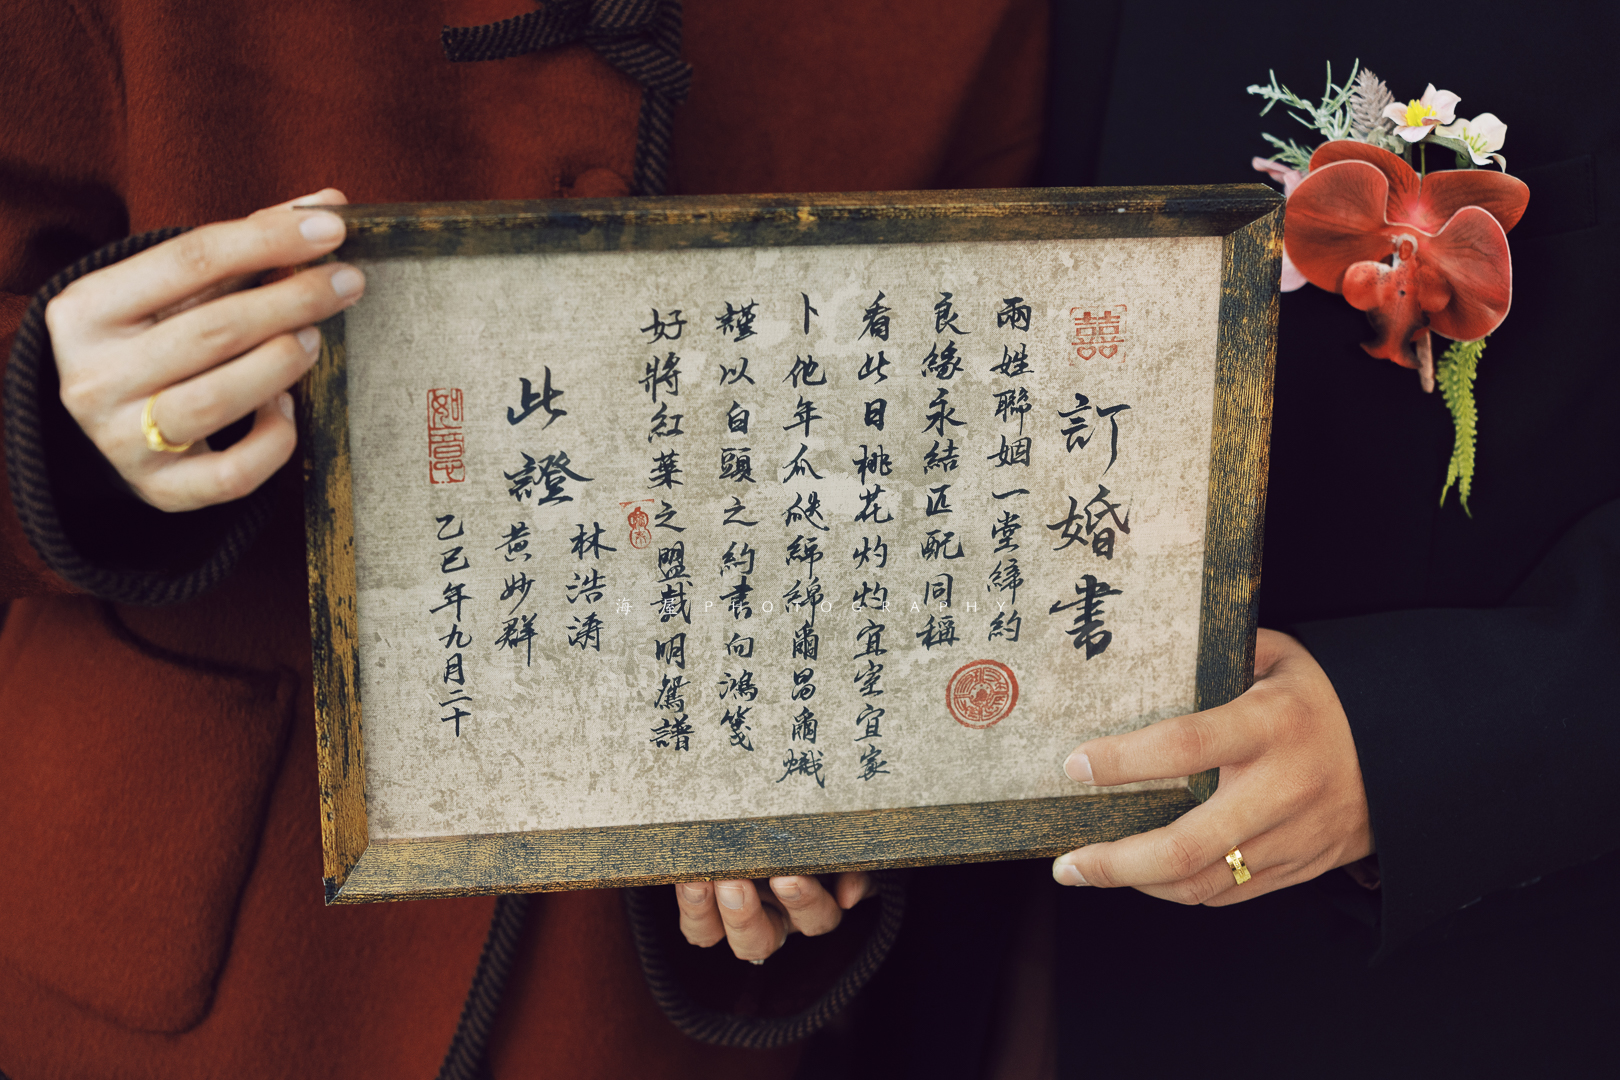 囍
訂婚書
兩姓聯姻一堂締約
良緣永結匹配同稱
看此日桃花灼灼宜室宜家
卜他年瓜瓞綿綿爾昌爾熾
謹以白頭之約書向鴻箋
好將紅葉之盟載明鴛譜
此證
林浩濤
黃妙群
乙巳年九月二十
如意
海屋PHOTOGRAPHY